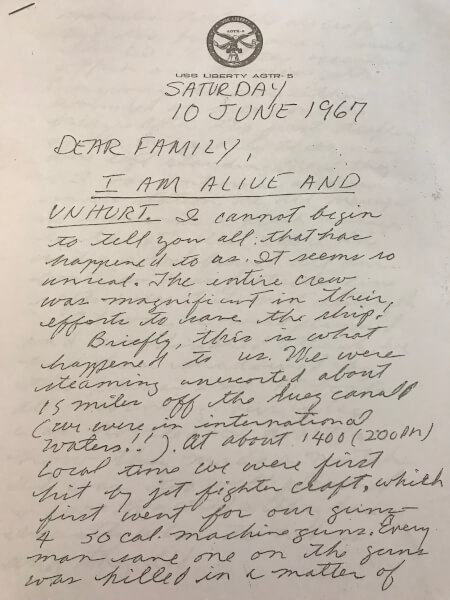 USS LIBERTY AGTR-5
SATURDAY
10 JUNE 1967
DEAR FAMILY,
I AM ALIVE AND
UNHURT. I cannot begin
to tell you all that has
happened to us. It seems so
unreal. The entire crew
was magnificent in their
efforts to save the ship!
Briefly, this is what
happened to us. We were
steaming unescorted about
15 miles off the Suez canal
(we were in international
waters!!). At about 1400 (200PM)
local time we were first
hit by jet fighter craft, which
first went for our guns-
4 50 cal. machine guns. Every
man save one on the guns
was killed in a matter of